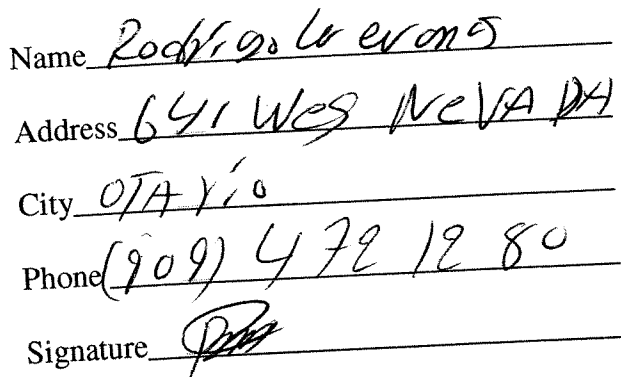 Name Rodrigo
Address 641 Wes NeVADA
City OTAYio
Phone (909) 472 1280
Signature